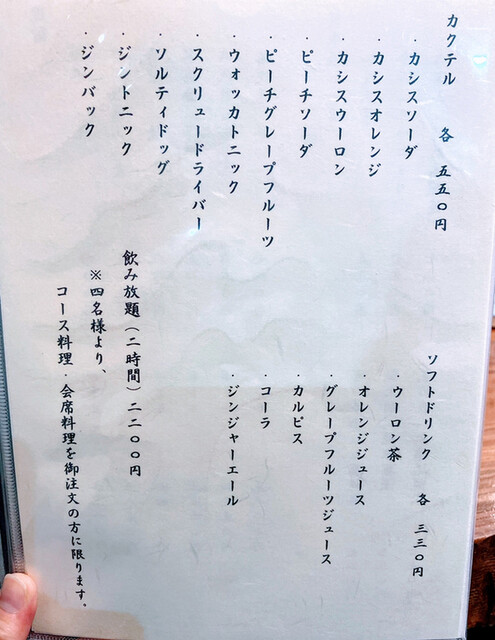 カクテル 各 五五〇円
・カシスソーダ
・カシスオレンジ
・カシスウーロン
・ピーチソーダ
・ピーチグレープフルーツ
・ウォッカトニック
・スクリュードライバー
・ソルティドッグ
・ジントニック
・ジンバック
ソフトドリンク 各 三三〇円
・ウーロン茶
・オレンジジュース
・グレープフルーツジュース
・カルピス
・コーラ
・ジンジャーエール
飲み放題(二時間)二二〇〇円
※四名様より、
コース料理・会席料理を御注文の方に限ります。